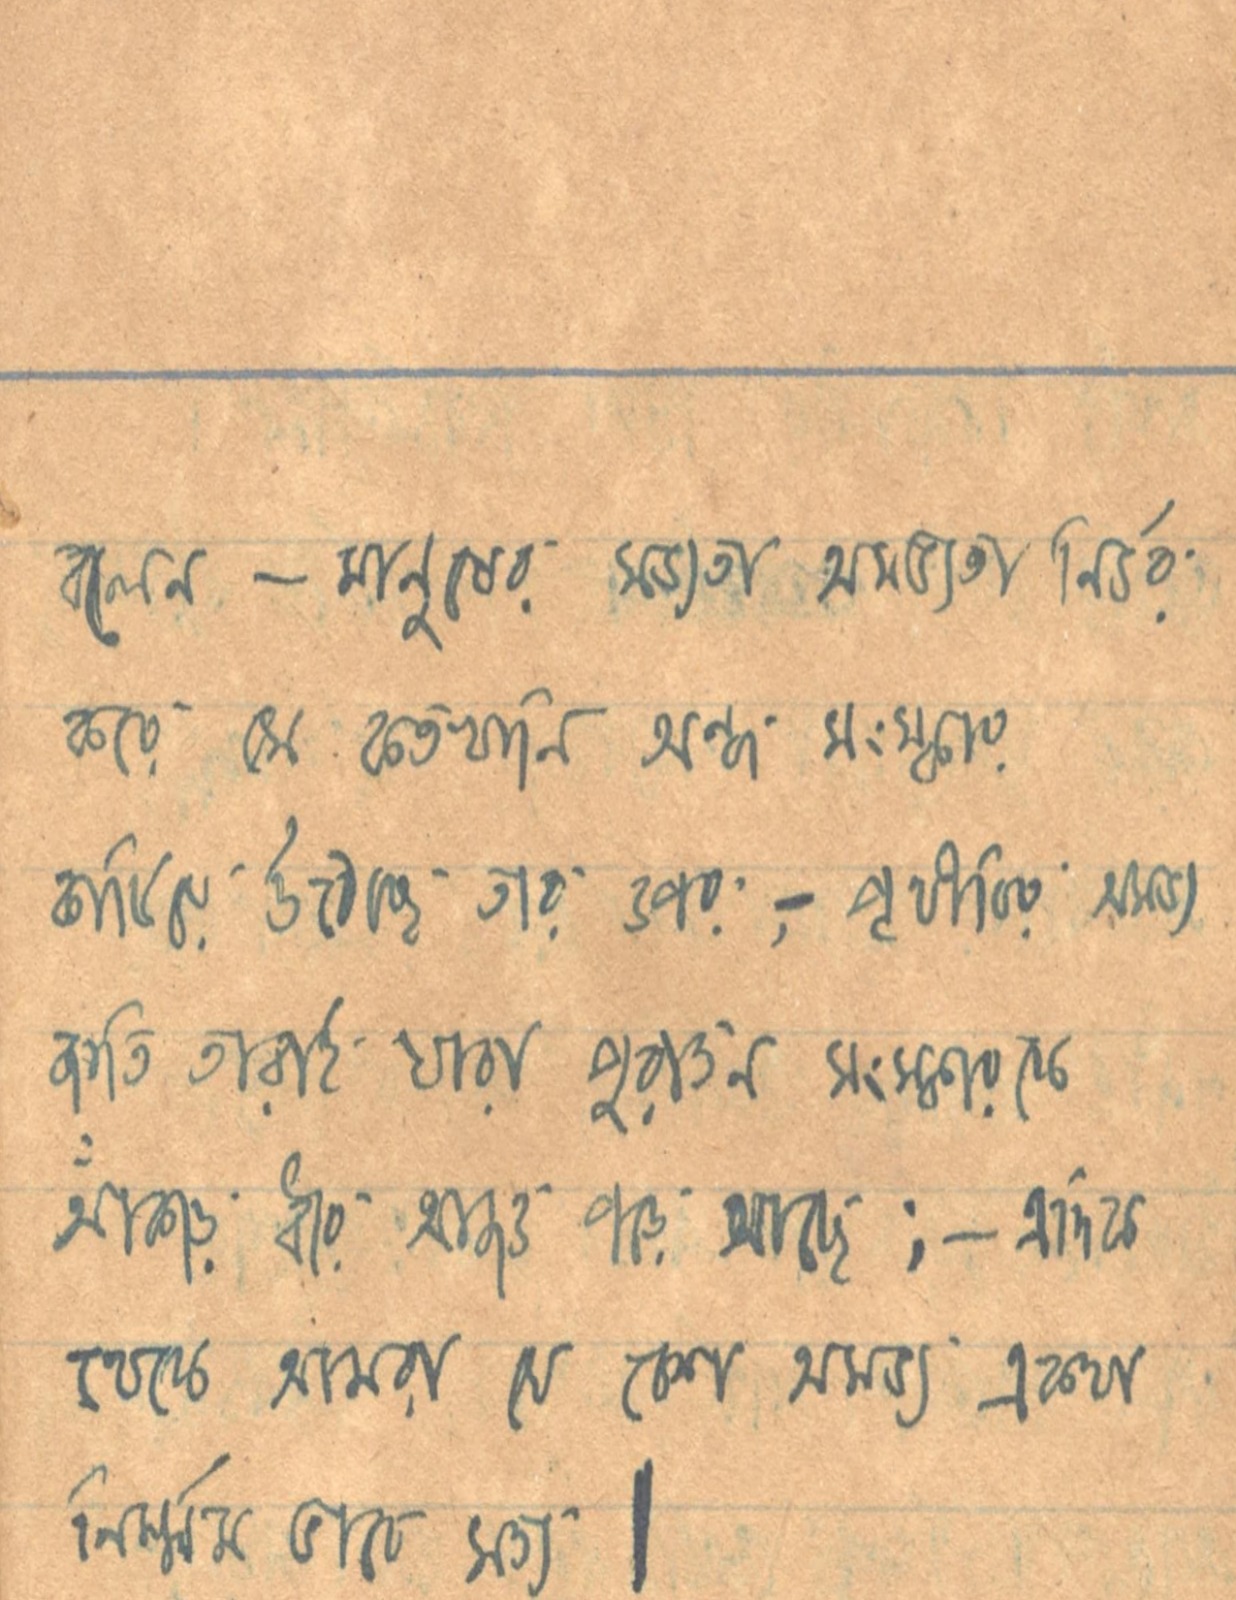 বলেন – মানুষের সভ্যতা অসভ্যতা নির্ভর
করে সে কতখানি অন্ধ সংস্কার
কাটিয়ে উঠেছে তার ওপর ;– পৃথীবির অসভ্য
জাতি তারাই যারা পুরাতন সংস্কারকে
আঁকড়ে ধরে আজও পড়ে আছে ;– এদিক
থেকে আমরা যে বেশী অসভ্য একথা
নির্ম্মম ভাবে সত্য ।